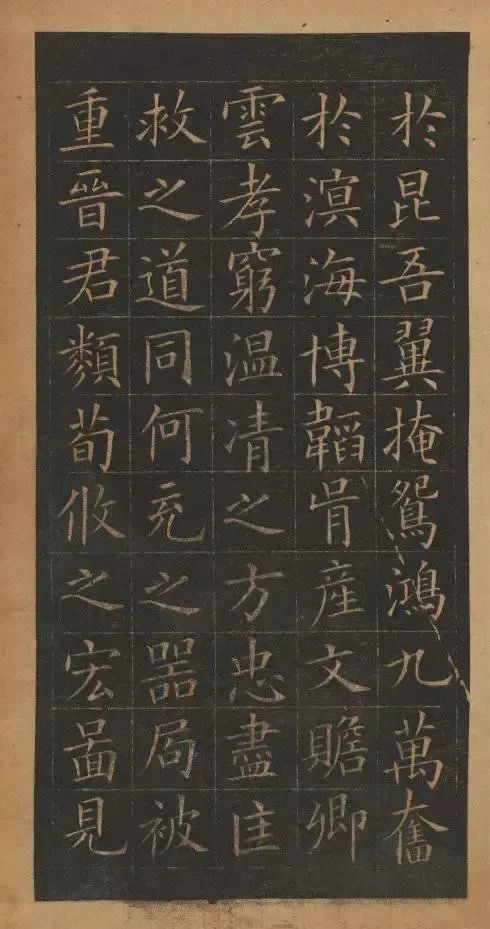 於昆吾翼掩鴛鴻九萬奮
於溟海博韜產文贍卿
雲孝窮温凊之方忠盡匡
救之道同何充之噐局被
重晉君類荀攸之宏啚見